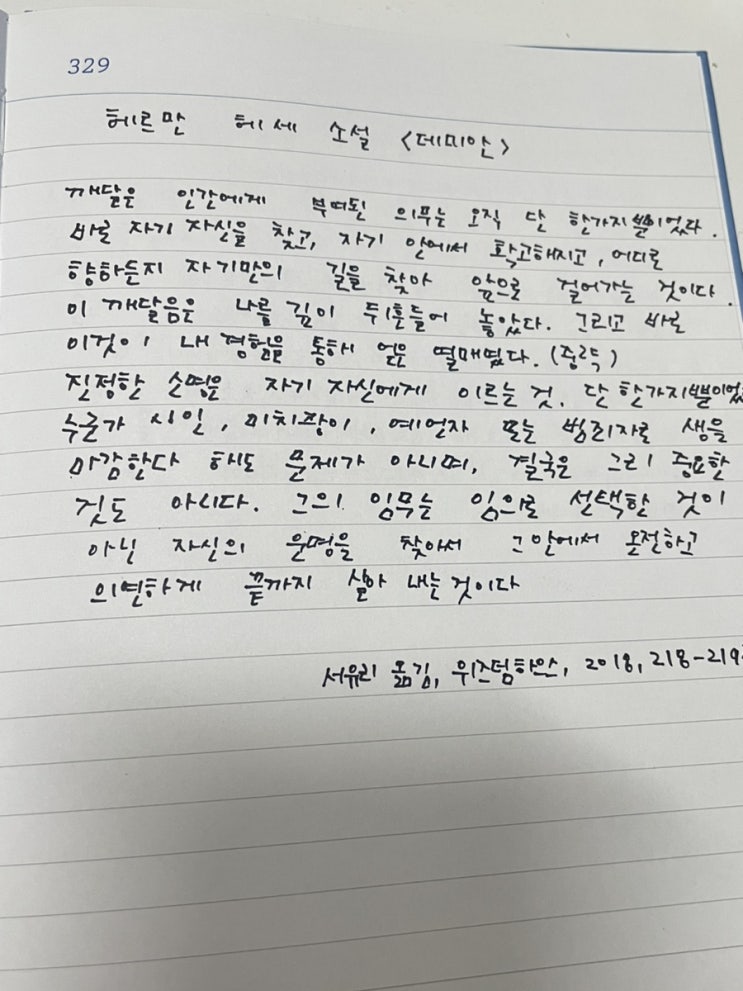 329
헤르만 헤세 소설 <데미안>
깨달은 인간에게 부여된 의무는 오직 단 한가지뿐이었다.
바로 자기 자신을 찾고, 자기 안에서 확고해지고, 어디로
향하든지 자기만의 길을 찾아 앞으로 걸어가는 것이다.
이 깨달음은 나를 깊이 뒤흔들어 놓았다. 그리고 바로
이것이 내 경험을 통해 얻은 열매였다. (중략)
진정한 소명은 자기 자신에게 이르는 것. 단 한가지뿐이었
누군가 시인, 미치광이, 예언자 또는 범죄자로 생을
마감한다 해도 문제가 아니며, 결국은 그리 중요한
것도 아니다. 그의 임무는 임의로 선택한 것이
아닌 자신의 운명을 찾아서 그안에서 온전하고
의연하게 끝까지 살아 내는 것이다
서유리 옮김, 위즈덤하우스, 2018, 218-219